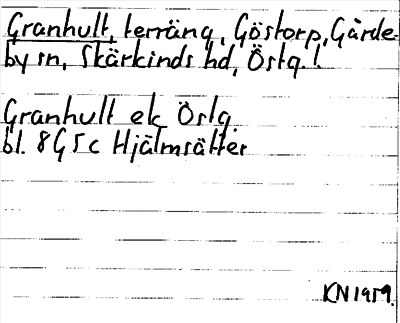 Granhult, terräng, Göstorp, Gårde-
by sn, Skärkinds hd, Östg.l.
Granhult ek Östg.
bl. 8G5c Hjälmsätter
KN1959.